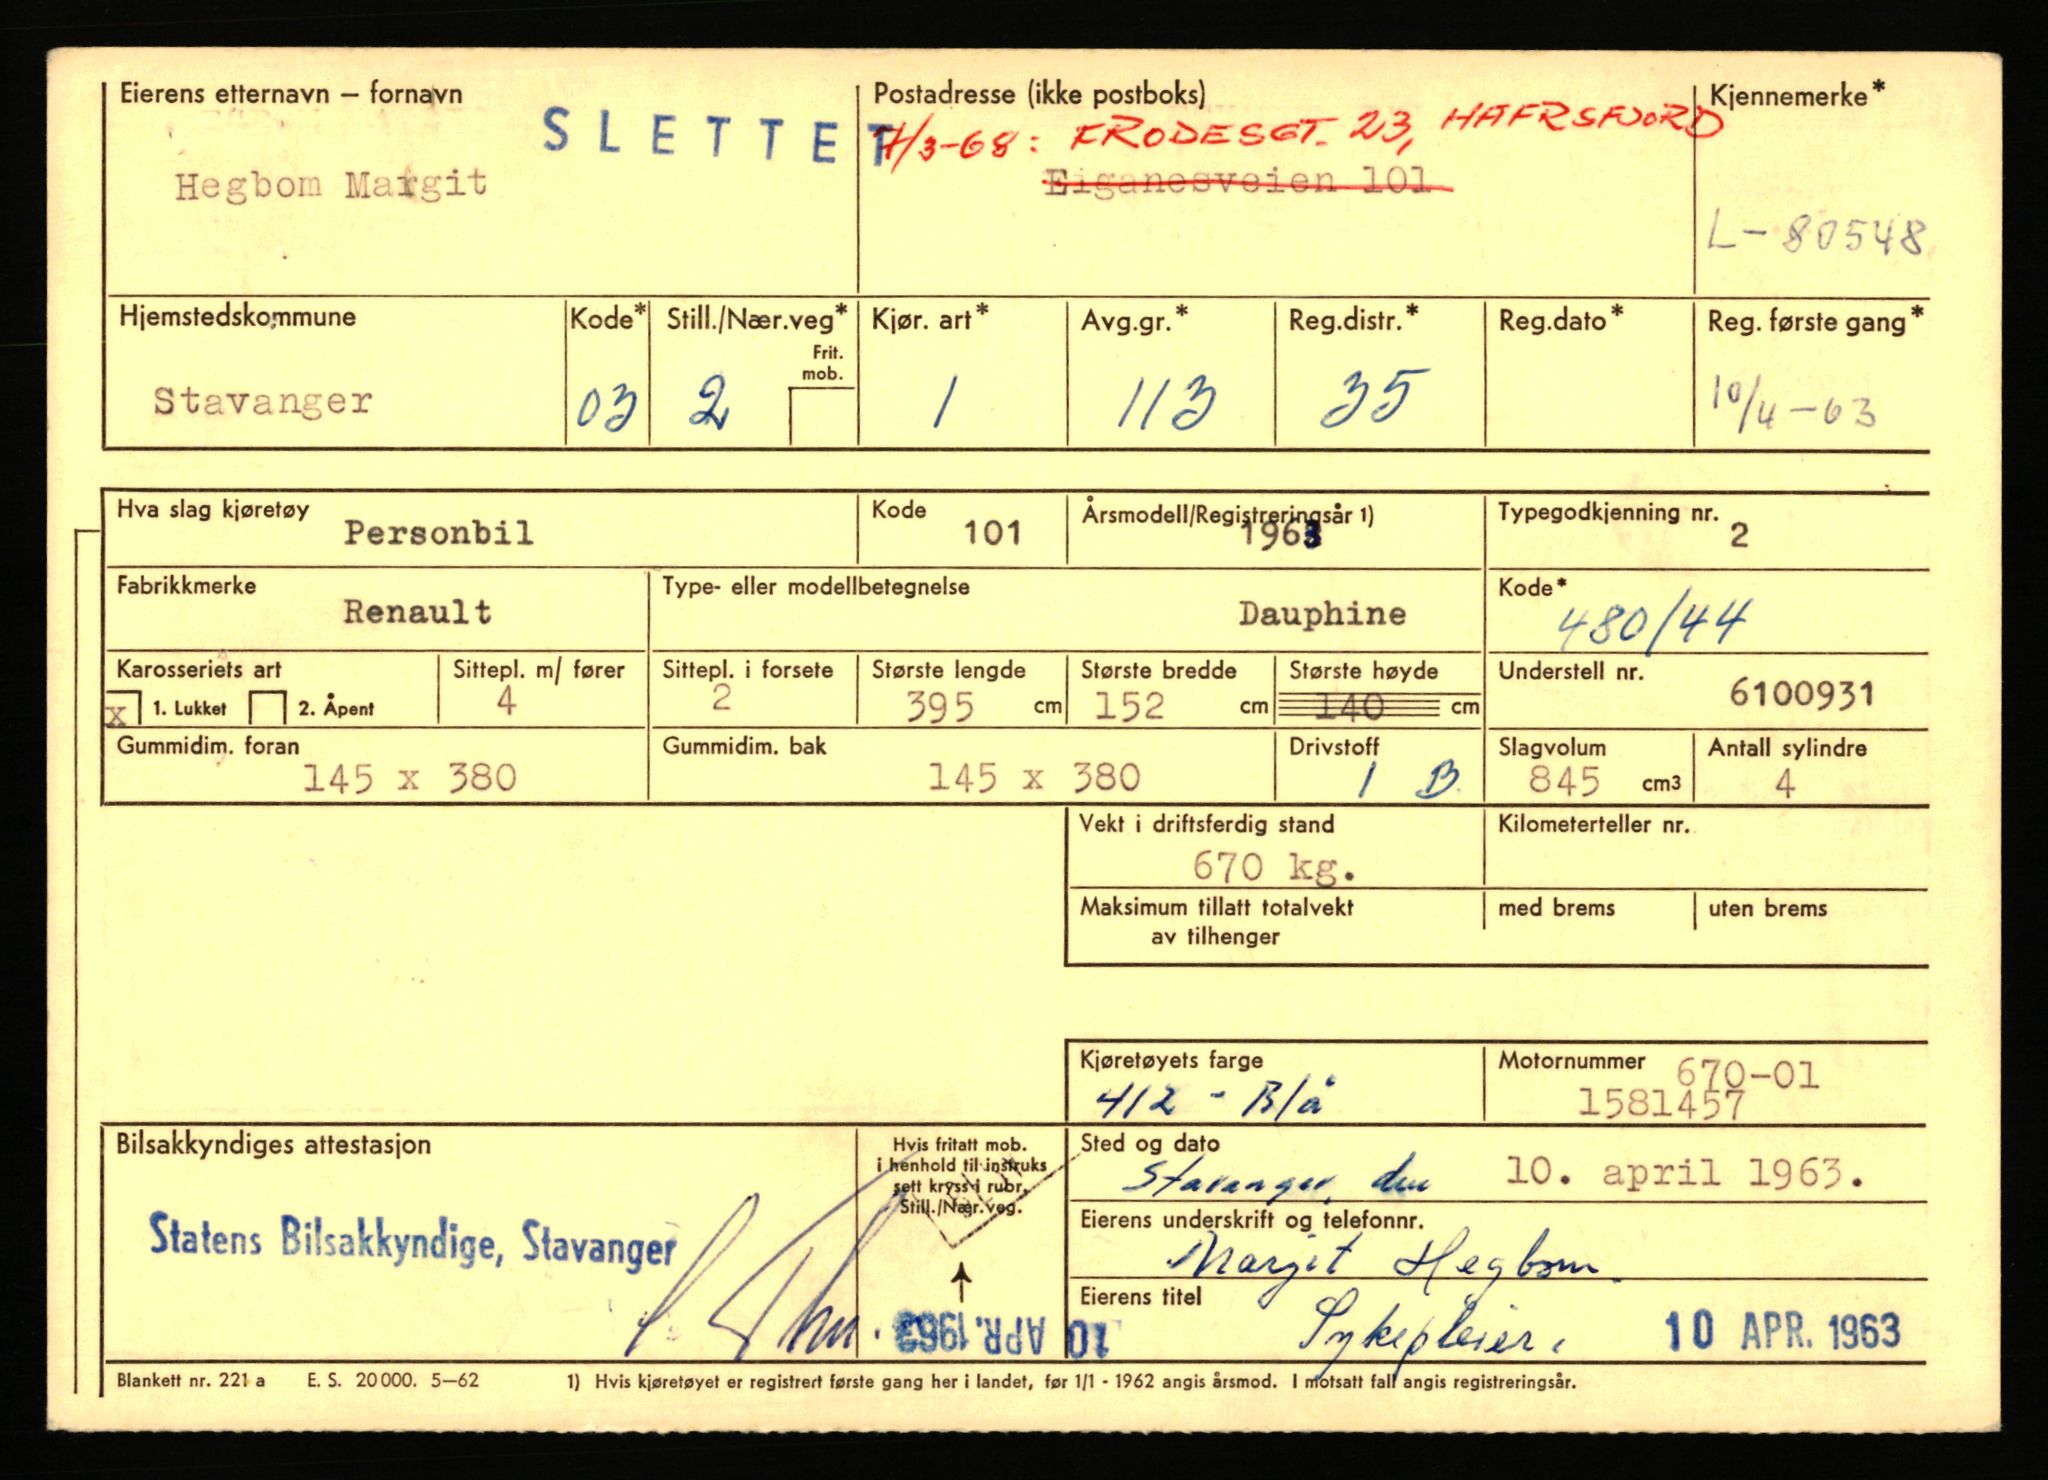 Eierens etternavn – fornavn
SLETTET
Hegbom Margit
Postadresse (ikke postboks)
/3-68: FRODESGT. 23, HAFRSFJORD
Eiganesveien 101
Kjennemerke*
L-80548
Hjemstedskommune
Stavanger
Kode*
03
Still./Nær.veg*
Frit.
mob.
2
Kjør. art*
1
Avg.gr.*
113
Reg.distr.*
35
Reg.dato*
Reg. første gang*
10/4-63
Hva slag kjøretøy
Personbil
Kode
101
Årsmodell/Registreringsår 1)
1963
Typegodkjenning nr.
2
Fabrikkmerke
Renault
Type- eller modellbetegnelse
Dauphine
Kode*
480/44
Karosseriets art
x 1. Lukket 2. Åpent
Sittepl. m/ fører
4
Sittepl. i forsete
2
Største lengde
395 cm
Største bredde
152 cm
Største høyde
140 cm
Understell nr.
6100931
Gummidim. foran
145 x 380
Gummidim. bak
145 x 380
Drivstoff
1 B.
Slagvolum
845 cm3
Antall sylindre
4
Vekt i driftsferdig stand
670 kg.
Kilometerteller nr.
Maksimum tillatt totalvekt
av tilhenger
med brems
uten brems
Kjøretøyets farge
412 - Blå
Motornummer
670-01
1581457
Bilsakkyndiges attestasjon
Statens Bilsakkyndige, Stavanger
Hvis fritatt mob.
i henhold til instruks
sett kryss i rubr.
Still./Nær.veg.
10 APR. 1963
Sted og dato
Stavanger, den 10. april 1963.
Eierens underskrift og telefonnr.
Margit Hegbom.
Eierens titel
Sykepleier.
10 APR. 1963
Blankett nr. 221 a E. S. 20 000. 5–62 1) Hvis kjøretøyet er registrert første gang her i landet, før 1/1 - 1962 angis årsmod. I motsatt fall angis registreringsår.